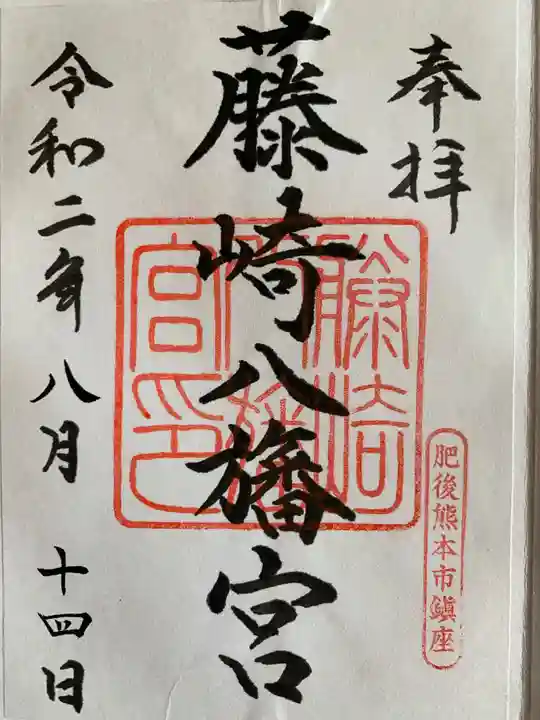 奉拝
肥後熊本市鎮座
藤崎八旛宮
藤崎
八旛
宮印
令和二年八月十四日